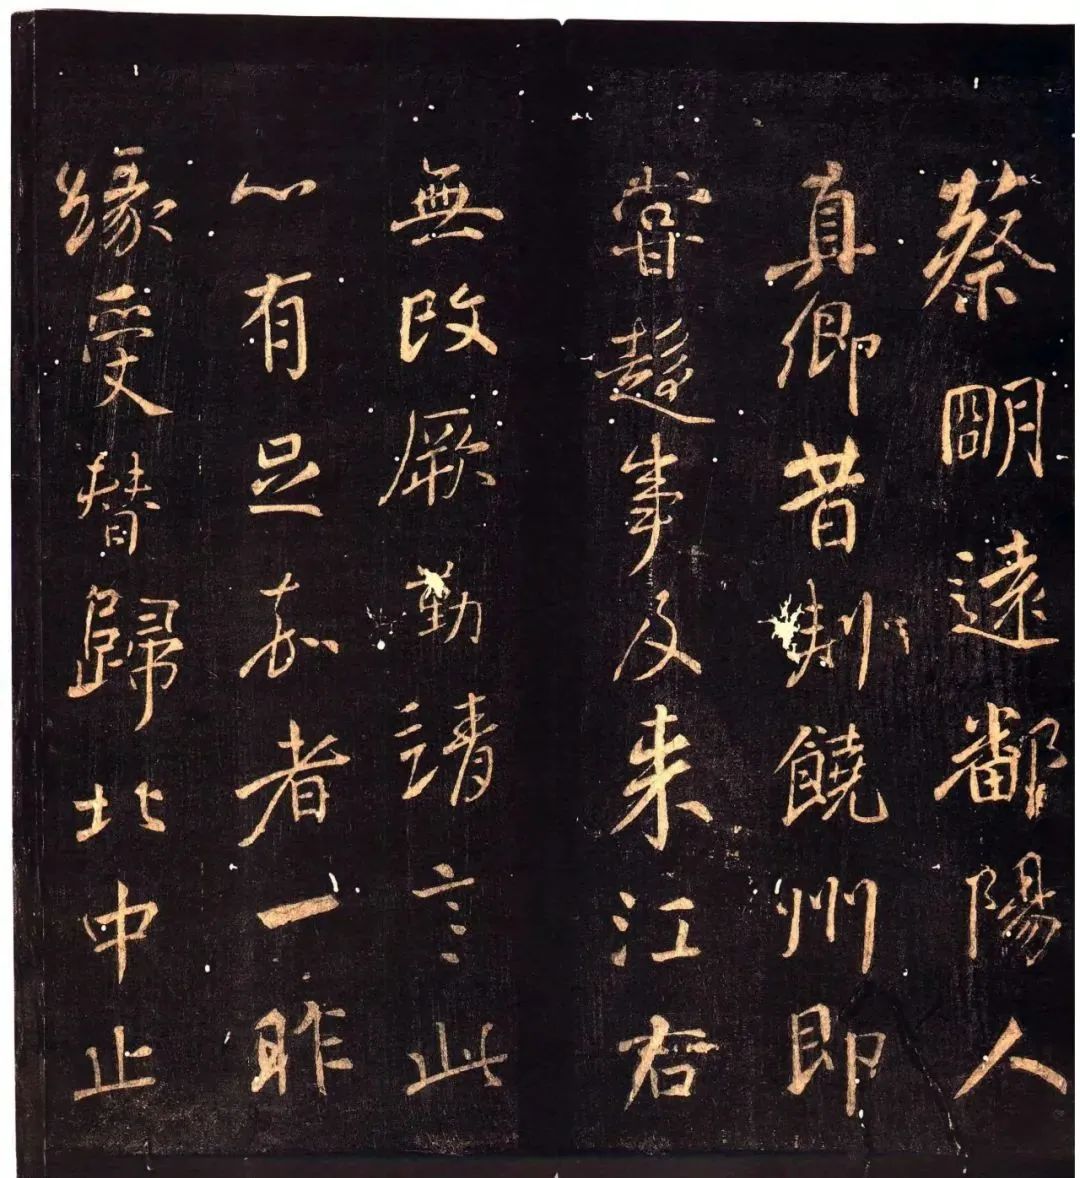 蔡朙遠鄱陽人
真卿昔刾饒州即
嘗趍事及来江右
無改厥勤靖言此
心有足嘉者一昨
緣受替歸北中止